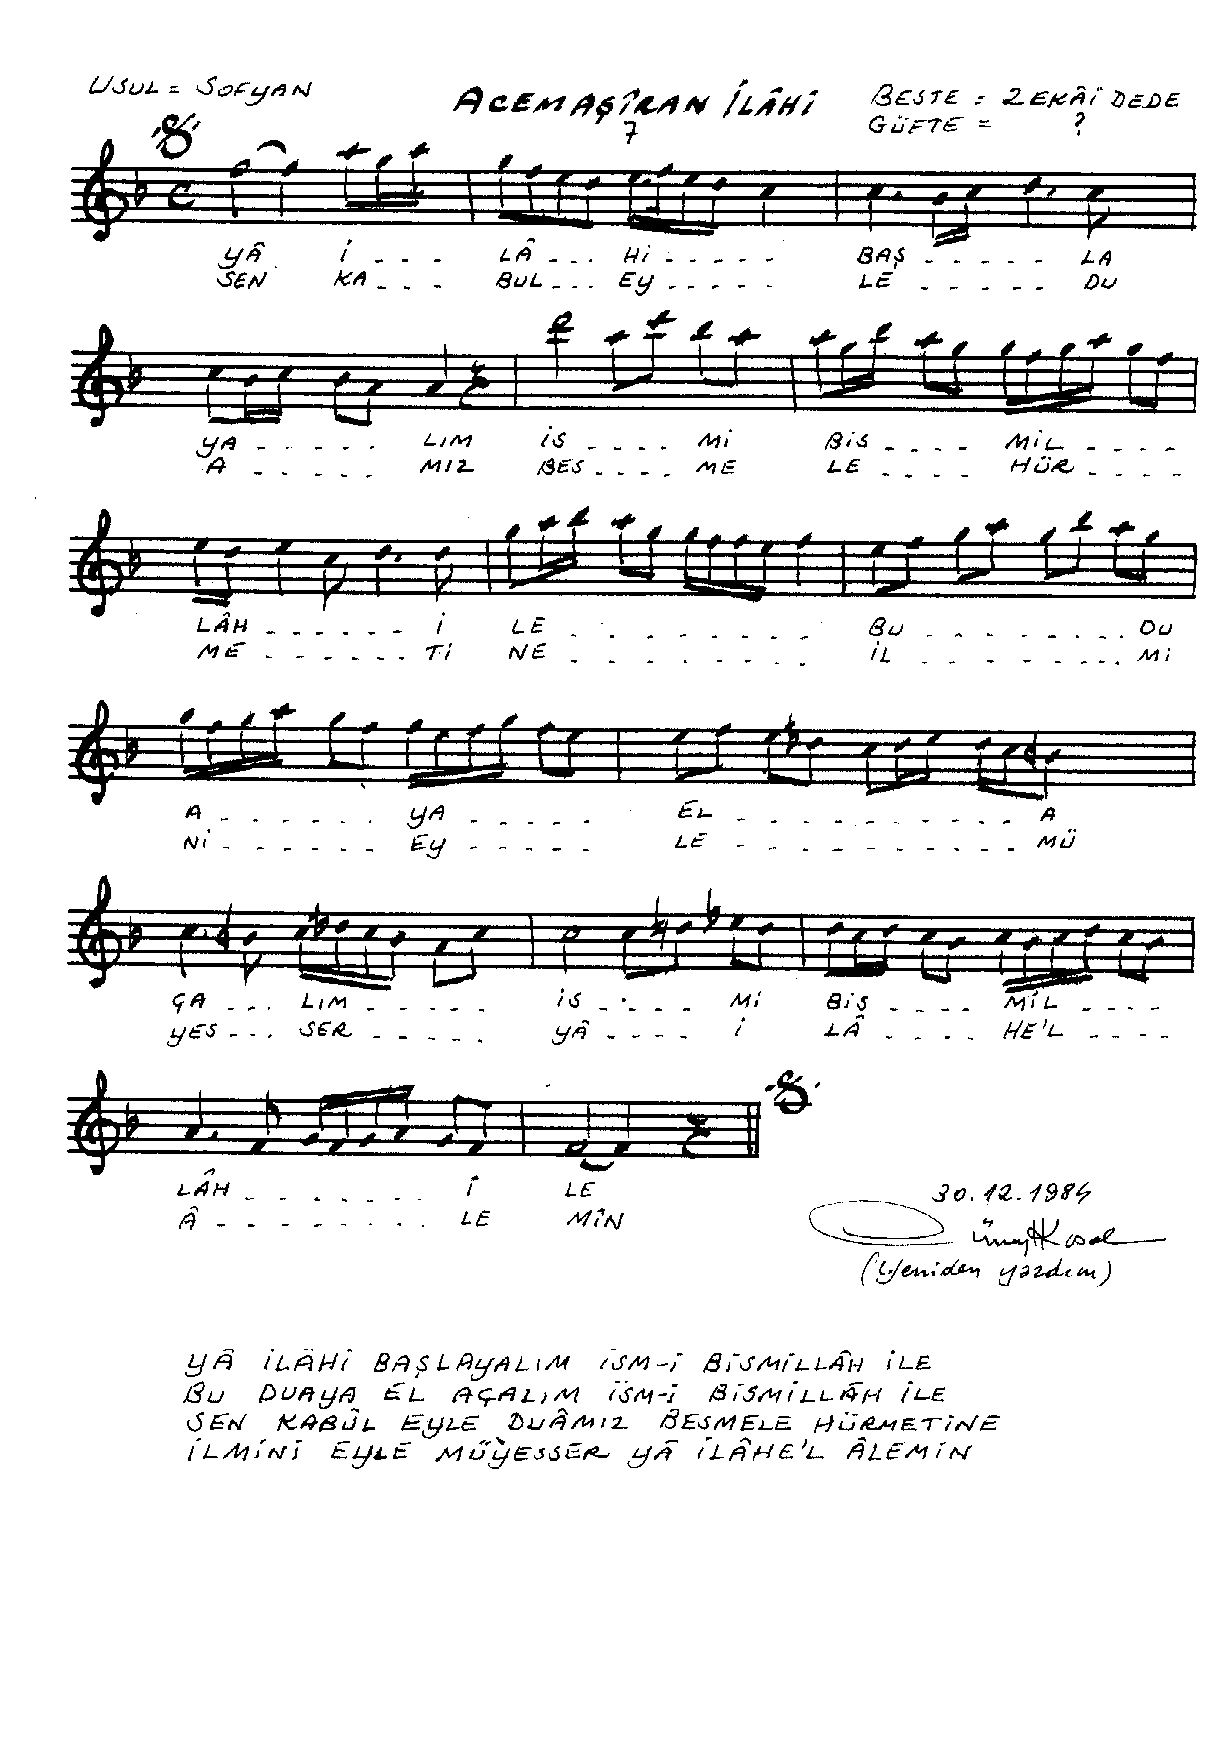 USUL = SOFYAN
ACEMAŞÎRAN İLÂHİ
7
BESTE = ZEKÂİ DEDE
GÜFTE = ?
YÂ İ --- LÂ --- Hİ ----- BAŞ ----- LA
SEN KA --- BUL --- EY ----- LE ----- DU
YA ----- LIM İS ---- Mİ BİS ---- MİL ----
A ----- MIZ BES ---- ME LE ---- HÜR ----
LÂH ------ İ LE ------- BU ------- DU
ME ------ Tİ NE ------- İL ------- Mİ
A ------ YA ----- EL ---------- A
Nİ ------ EY ----- LE ---------- MÜ
ÇA --- LIM ----- İS ---- Mİ BİS ---- MİL ----
YES --- SER ----- YÂ ---- İ LÂ ---- HE'L ----
LÂH ------- İ LE
Â -------- LE MÎN
30.12.1984
(Yeniden yazdım)
YÂ İLÂHİ BAŞLAYALIM İSM-İ BİSMİLLÂH İLE
BU DUAYA EL AÇALIM İSM-İ BİSMİLLÂH İLE
SEN KABÛL EYLE DUÂMIZ BESMELE HÜRMETİNE
İLMİNİ EYLE MÜYESSER YÂ İLÂHE'L ÂLEMİN